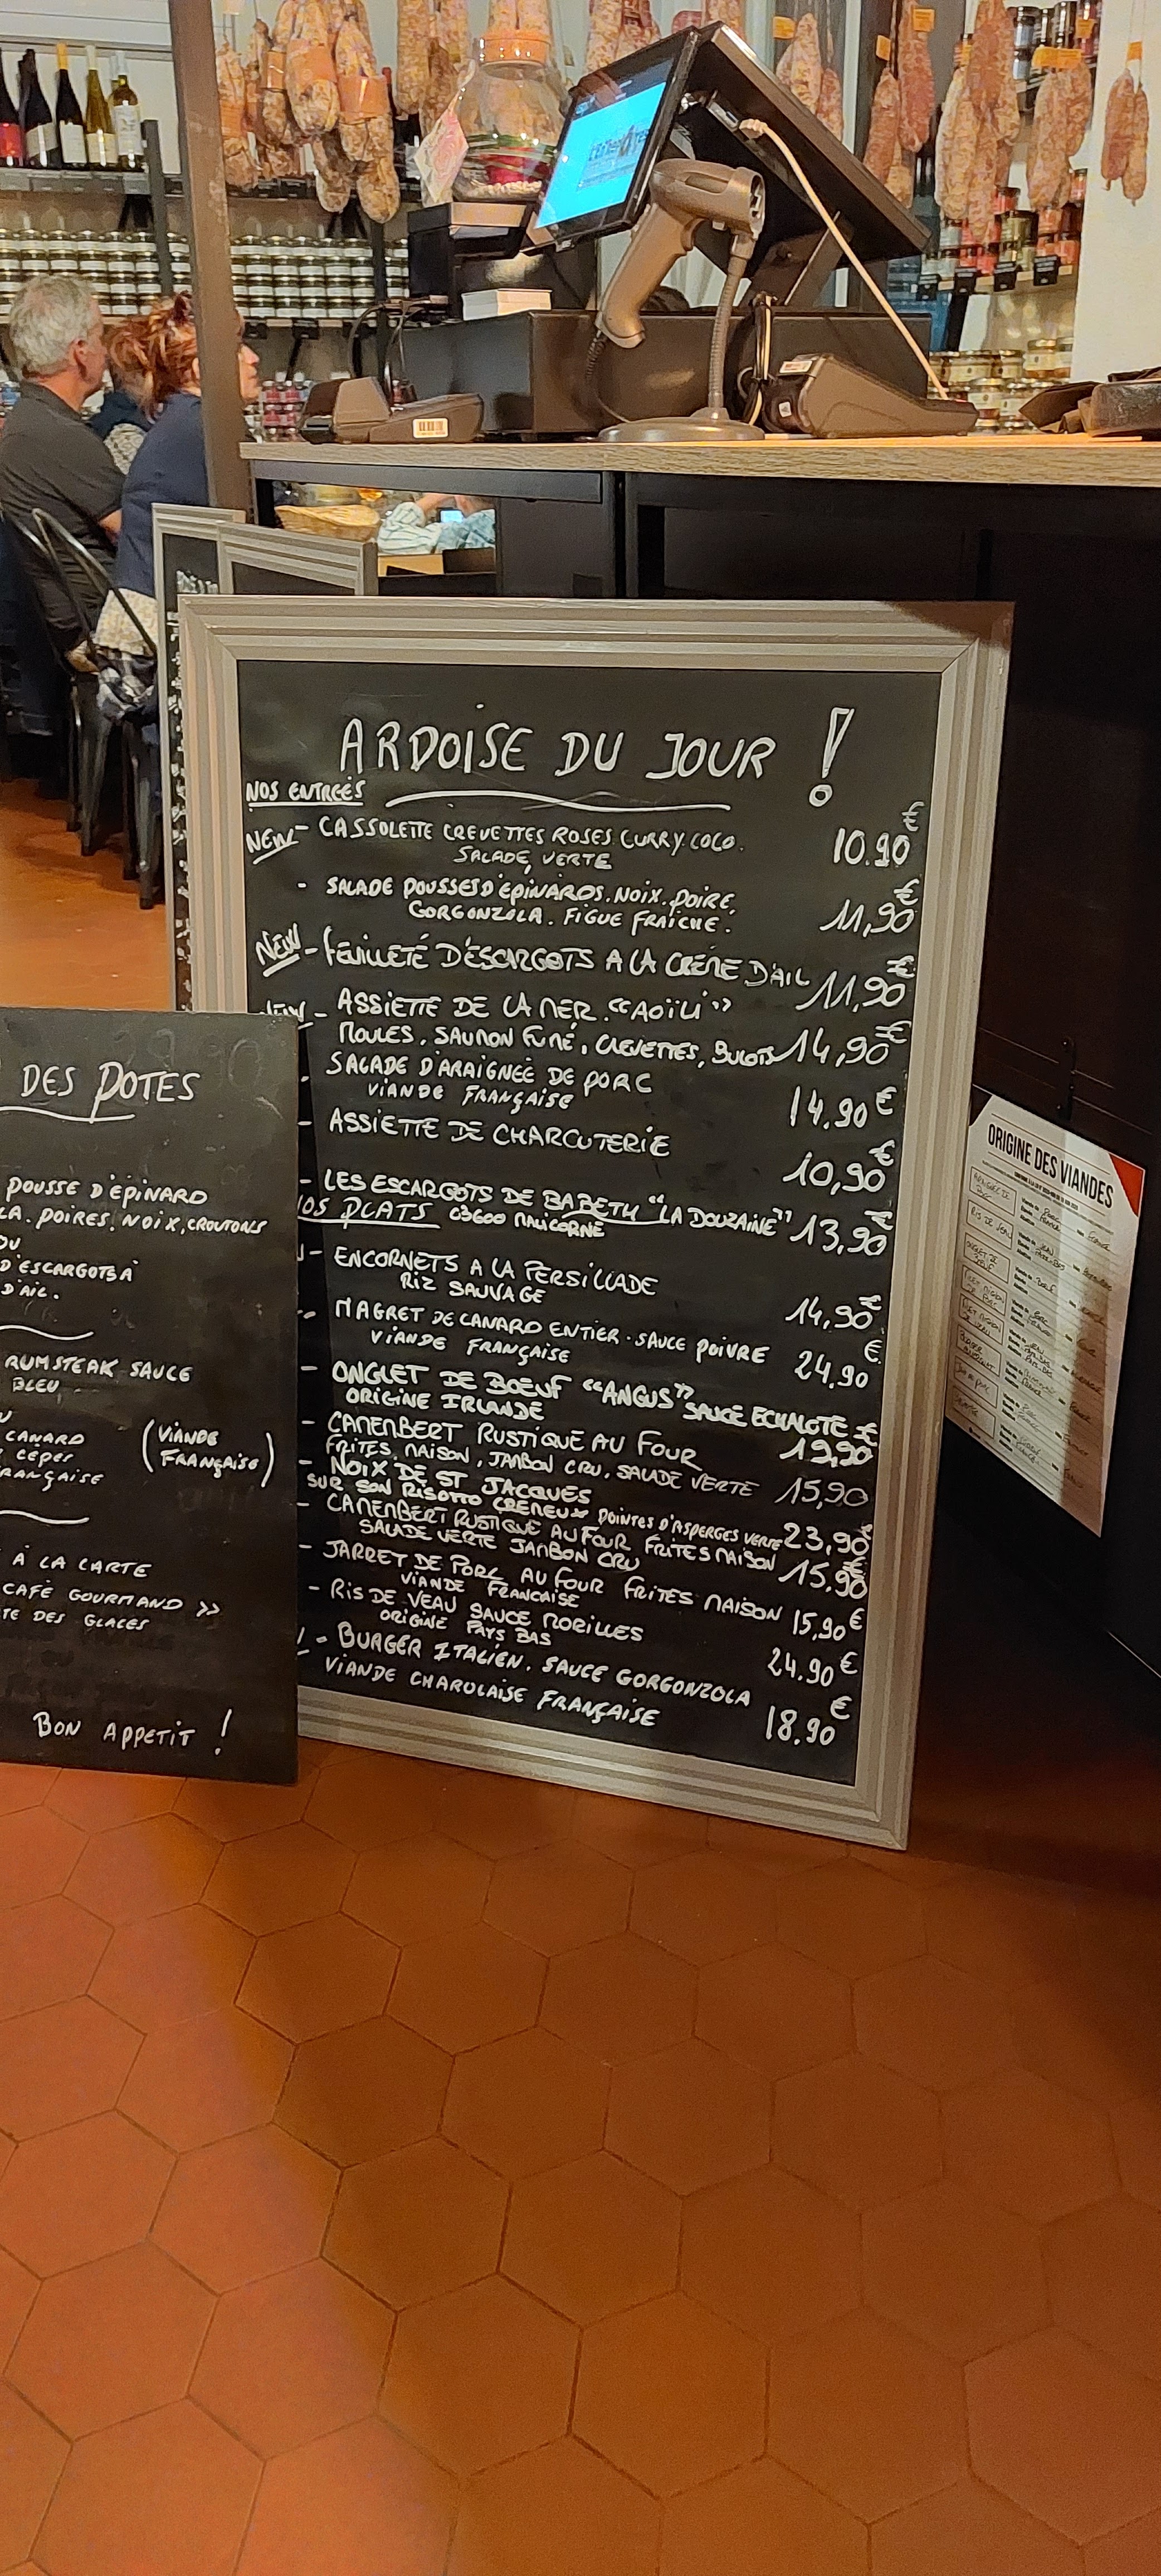 ARDOISE DU JOUR !
NOS ENTREES
NEW - CASSOLETTE CREVETTES ROSES CURRY COCO. 10.90 €
SALADE VERTE
- SALADE POUSSES D'ÉPINARDS. NOIX. POIRE. 11,90 €
GORGONZOLA. FIGUE FRAICHE.
NEW - FEUILLETÉ D'ESCARGOTS A LA CRÈME D'AIL 11,90 €
NEW - ASSIETTE DE LA MER. "AOÏLI"
MOULES, SAUMON FUMÉ, CREVETTES, BULOTS 14,90 €
- SALADE D'ARAIGNÉE DE PORC 14.90 €
VIANDE FRANÇAISE
- ASSIETTE DE CHARCUTERIE 10,90 €
- LES ESCARGOTS DE BABETH "LA DOUZAINE" 13,90 €
03600 MALICORNE
NOS PLATS
- ENCORNETS A LA PERSILLADE 14,90 €
RIZ SAUVAGE
- MAGRET DE CANARD ENTIER. SAUCE POIVRE 24.90 €
VIANDE FRANÇAISE
- ONGLET DE BOEUF "ANGUS" SAUCE ECHALOTE 19,90 €
ORIGINE IRLANDE
- CAMEMBERT RUSTIQUE AU FOUR
FRITES MAISON, JAMBON CRU, SALADE VERTE 15,90
- NOIX DE ST JACQUES
SUR SON RISOTTO CRÉMEUX POINTES D'ASPERGES VERTE 23,90 €
- CAMEMBERT RUSTIQUE AU FOUR FRITES MAISON 15.90 €
SALADE VERTE JAMBON CRU
- JARRET DE PORC AU FOUR FRITES MAISON 15,90 €
VIANDE FRANCAISE
- RIS DE VEAU SAUCE MORILLES 24.90 €
ORIGINE PAYS BAS
- BURGER ITALIEN. SAUCE GORGONZOLA 18.90 €
VIANDE CHAROLAISE FRANÇAISE
DES POTES
POUSSE D'ÉPINARD
LA. POIRES. NOIX, CROUTONS
OU
D'ESCARGOTS A
D'AIL.
RUMSTEAK SAUCE
BLEU
CANARD (VIANDE
CEPES FRANÇAISE)
RANÇAISE
À LA CARTE
CAFÉ GOURMAND >>
TE DES GLACES
BON APPETIT !
ORIGINE DES VIANDES